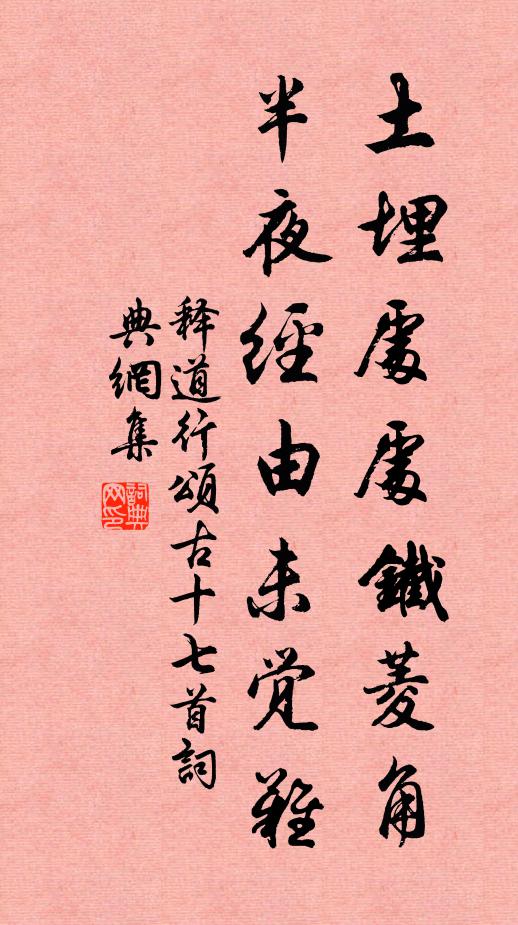 土埋處處鐵菱角
半夜經由未覺難
释道行頌古十七首詞
典網集
詞典網印